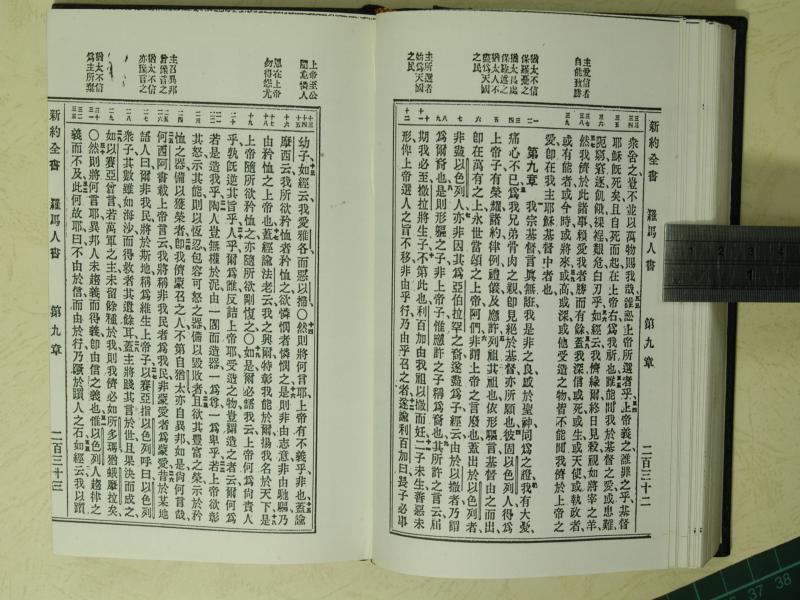 新約全書 羅馬人書 第九章 二百三十二
主愛信者
自能致勝
猶太不信
保羅憂之
猶太人不
盡為天國
之民
主所選者
始為天國
之民
衆舍之豈不並以萬物賜我哉誰訟上帝所選者乎上帝義之誰罪之乎基督
耶穌旣死矣且自死而起在上帝右為我祈也誰能間我於基督之愛或患難
阨窮窘逐飢餓裸裎艱危白刃乎如經云我儕緣爾終日見殺視如將宰之羊
然我儕於此諸事賴愛我者勝而有餘蓋我深信或死或生或天使或執政者
或有能者或今時或將來或高或深或他受造之物皆不能間我儕於上帝之
愛卽在我主耶穌基督中者也
第九章 我宗基督言眞無誑我是非之良感於聖神同為之證我有大憂
痛心不已為我兄弟骨肉之親卽見絕於基督亦所願也彼固以色列人得為
上帝子有榮耀諸約律例禮儀及應許列祖其祖也依形軀言基督由之而出
卽在萬有之上永世當頌之上帝阿們非謂上帝之言廢也蓋出於以色列者
非盡以色列人亦非因其為亞伯拉罕之裔遂盡為子經云由於以撒者乃謂
為爾裔也是則形軀之子非上帝子惟應許之子稱為裔也其所許之言云屆
期我必至撒拉將生子不第此也利百加由我祖以撒而妊二子未生善惡未
形俾上帝選人之旨不移非由乎行乃由乎召之者遂諭利百加曰長子必事
上帝至公
隨意憐人
恩在上帝
勿得怨尤
主召異邦
曾豫言之
猶太不信
亦豫言之
猶太不信
為主所棄
幼子如經云我愛雅各而惡以掃○然則將何言耶上帝有不義乎非也蓋諭
摩西云我所欲矜恤者矜恤之欲憐憫者憐憫之是則非由志意非由馳驅乃
由矜恤之上帝也蓋經諭法老云我之興爾特彰我能於爾揚我名於天下是
上帝隨所欲矜恤之亦隨所欲剛愎之○如是爾必語我云上帝何為尚責人
乎孰旣逆其旨乎人乎爾為誰反詰上帝耶受造之物豈謂造之者云爾何為
若是造我乎陶人豈無權於泥由一團而造器一為尊一為卑乎若上帝欲彰
其怒示其能則以恆忍包容可怒之器備以毀敗者且欲其豐富之榮示於矜
恤之器備以獲榮者卽我儕蒙召之人不第自猶太亦自異邦如是尚何言哉
何西阿書載上帝言云我將稱非我民者為我民非蒙愛者為蒙愛昔於某地
語人曰爾非我民將於斯地稱為維生上帝子以賽亞指以色列呼曰以色列
衆子其數雖如海沙而得救者其遺餘耳蓋主將踐其言於世且果決而成之
如以賽亞曾言若萬軍之主未留餘種於我則我儕必如所多瑪猶蛾摩拉矣
○然則將何言耶異邦人未趨義而得義卽由信之義也惟以色列人趨律之
義而不及此何故耶曰不由於信而由於行乃躓於躓人之石如經云我以躓
新約全書 羅馬人書 第九章 二百三十三